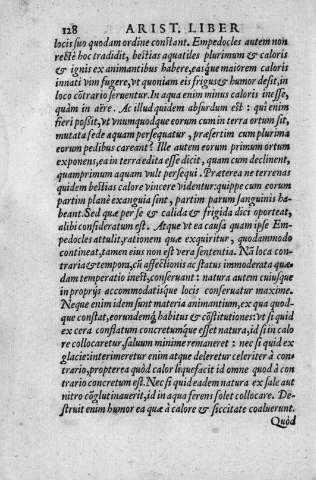 128 ARIST. LIBER
locis suo quodam ordine constant. Empedocles autem non
rectè hoc tradidit, bestias aquatiles plurimum & caloris
& ignis ex animantibus habere, easque maiorem caloris
innati vim fugere, vt quoniam eis frigus & humor desit, in
loco cõtrario seruentur. In aqua enim minus caloris inesse,
quàm in aëre. Ac illud quidem absurdum est: qui enim
fieri possit, vt vnumquodque eorum cum in terra ortum sit,
mutata sede aquam persequatur, præsertim cum plurima
eorum pedibus careant? Ille autem eorum primum ortum
exponens, ea in terra edita esse dicit, quam cum declinent,
quamprimum aquam vult persequi. Præterea ne terrenas
quidem bestias calore vincere videntur: quippe cum eorum
partim planè exanguia sint, partim parum sanguinis ha-
beant. Sed quæ per se & calida & frigida dici oporteat,
alibi consideratum est. Atque vt ea causa quam ipse Em-
pedocles attulit, rationem quæ exquiritur, quodammodo
contineat, tamen eius non est vera sententia. Nã loca con-
traria & tempora, cũ affectionis ac status immoderata quæ-
dam temperatio inest, conseruant: natura autem cuiusque
in proprijs accommodatisque locis conseruatur maxime.
Neque enim idem sunt materia animantium, ex qua quod-
que constat, eorundemq́; habitus & cõstitutiones: vt si quid
ex cera constatum concretumque esset natura, id si in calo
re collocaretur, saluum minime remaneret: nec si quid ex
glacie: interimeretur enim atque deleretur celeriter à con-
trario, propterea quòd calor liquefacit id omne quod à con
trario concretum est. Nec si quid eadem natura ex sale aut
nitro cõglutinauerit, id in aqua ferens solet collocare. De-
struit enim humor ea quæ à calore & siccitate coaluerunt.
Quòd